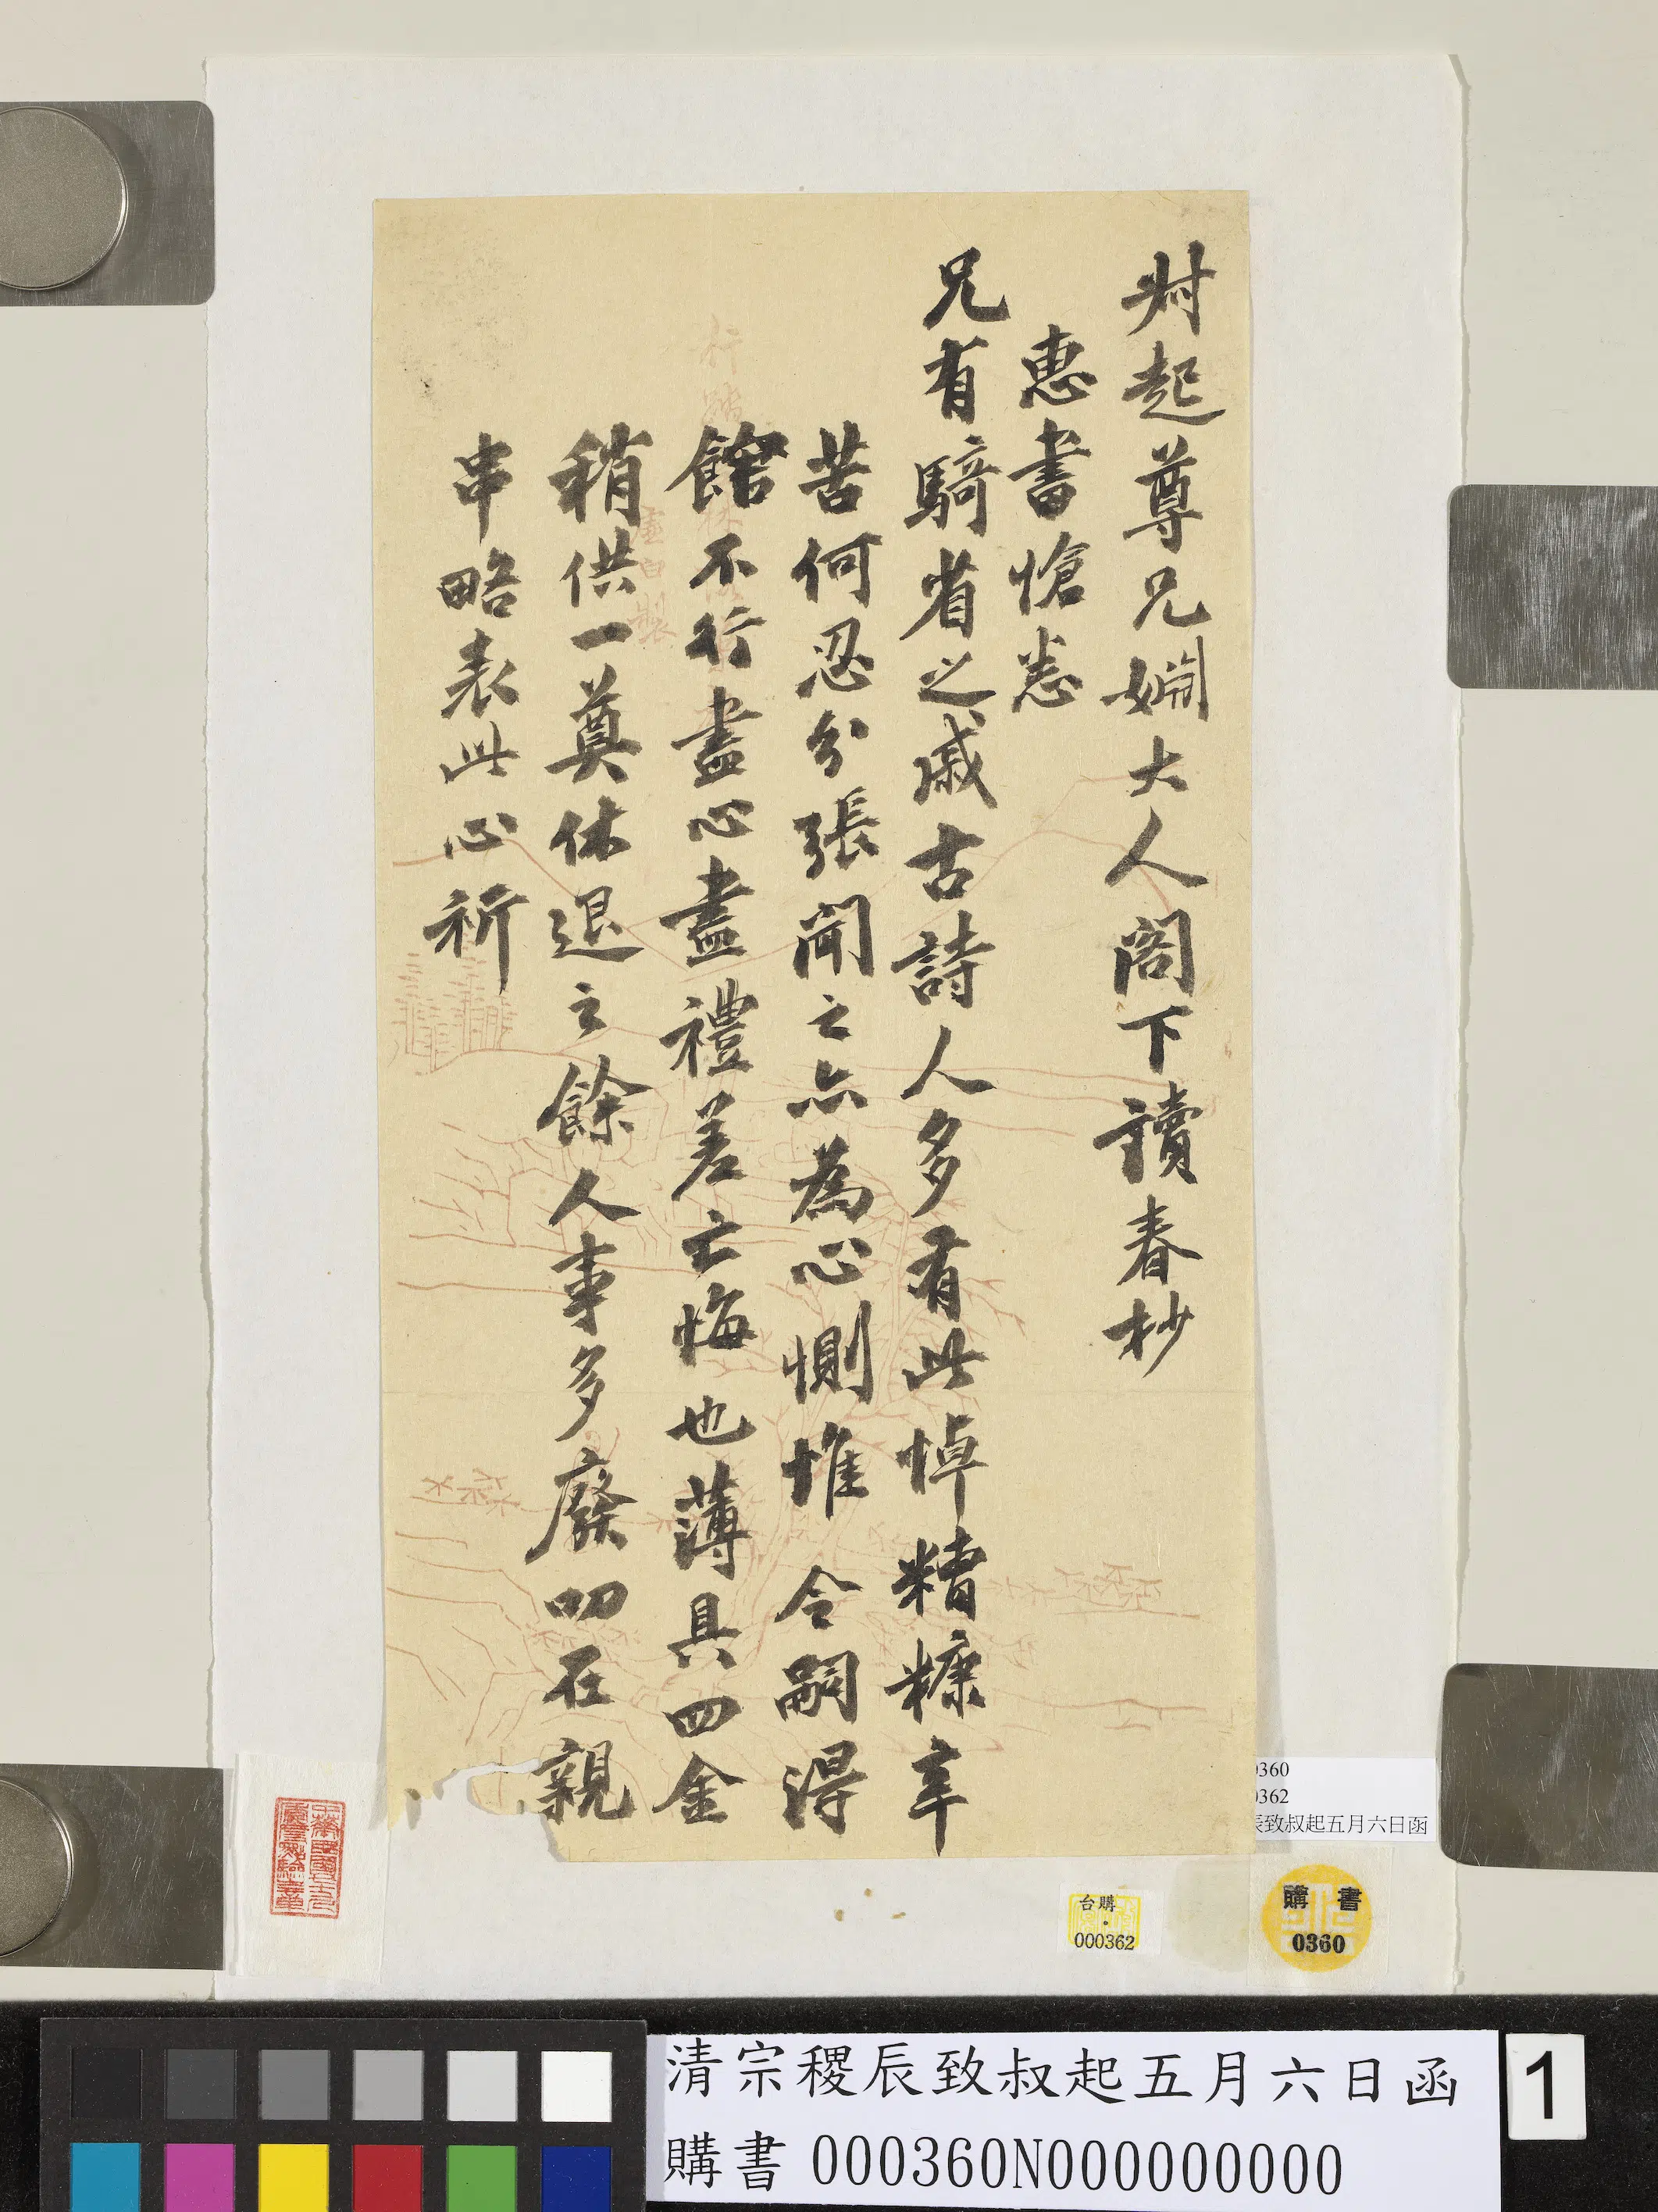 尗起尊兄姻大人閣下讀春抄
惠書愴悉
兄有騎省之戚古詩人多有此悼糟糠辛
苦何忍分張聞之亦為心惻惟 令嗣得
館不行盡心盡禮差亡悔也薄具四金
稍供一奠休退之餘人事多廢叨在親
串略表此心祈
虛白製
0360
0362
辰致叔起五月六日函
台購
000362
購書
0360
清宗稷辰致叔起五月六日函
購書 000360N000000000
1